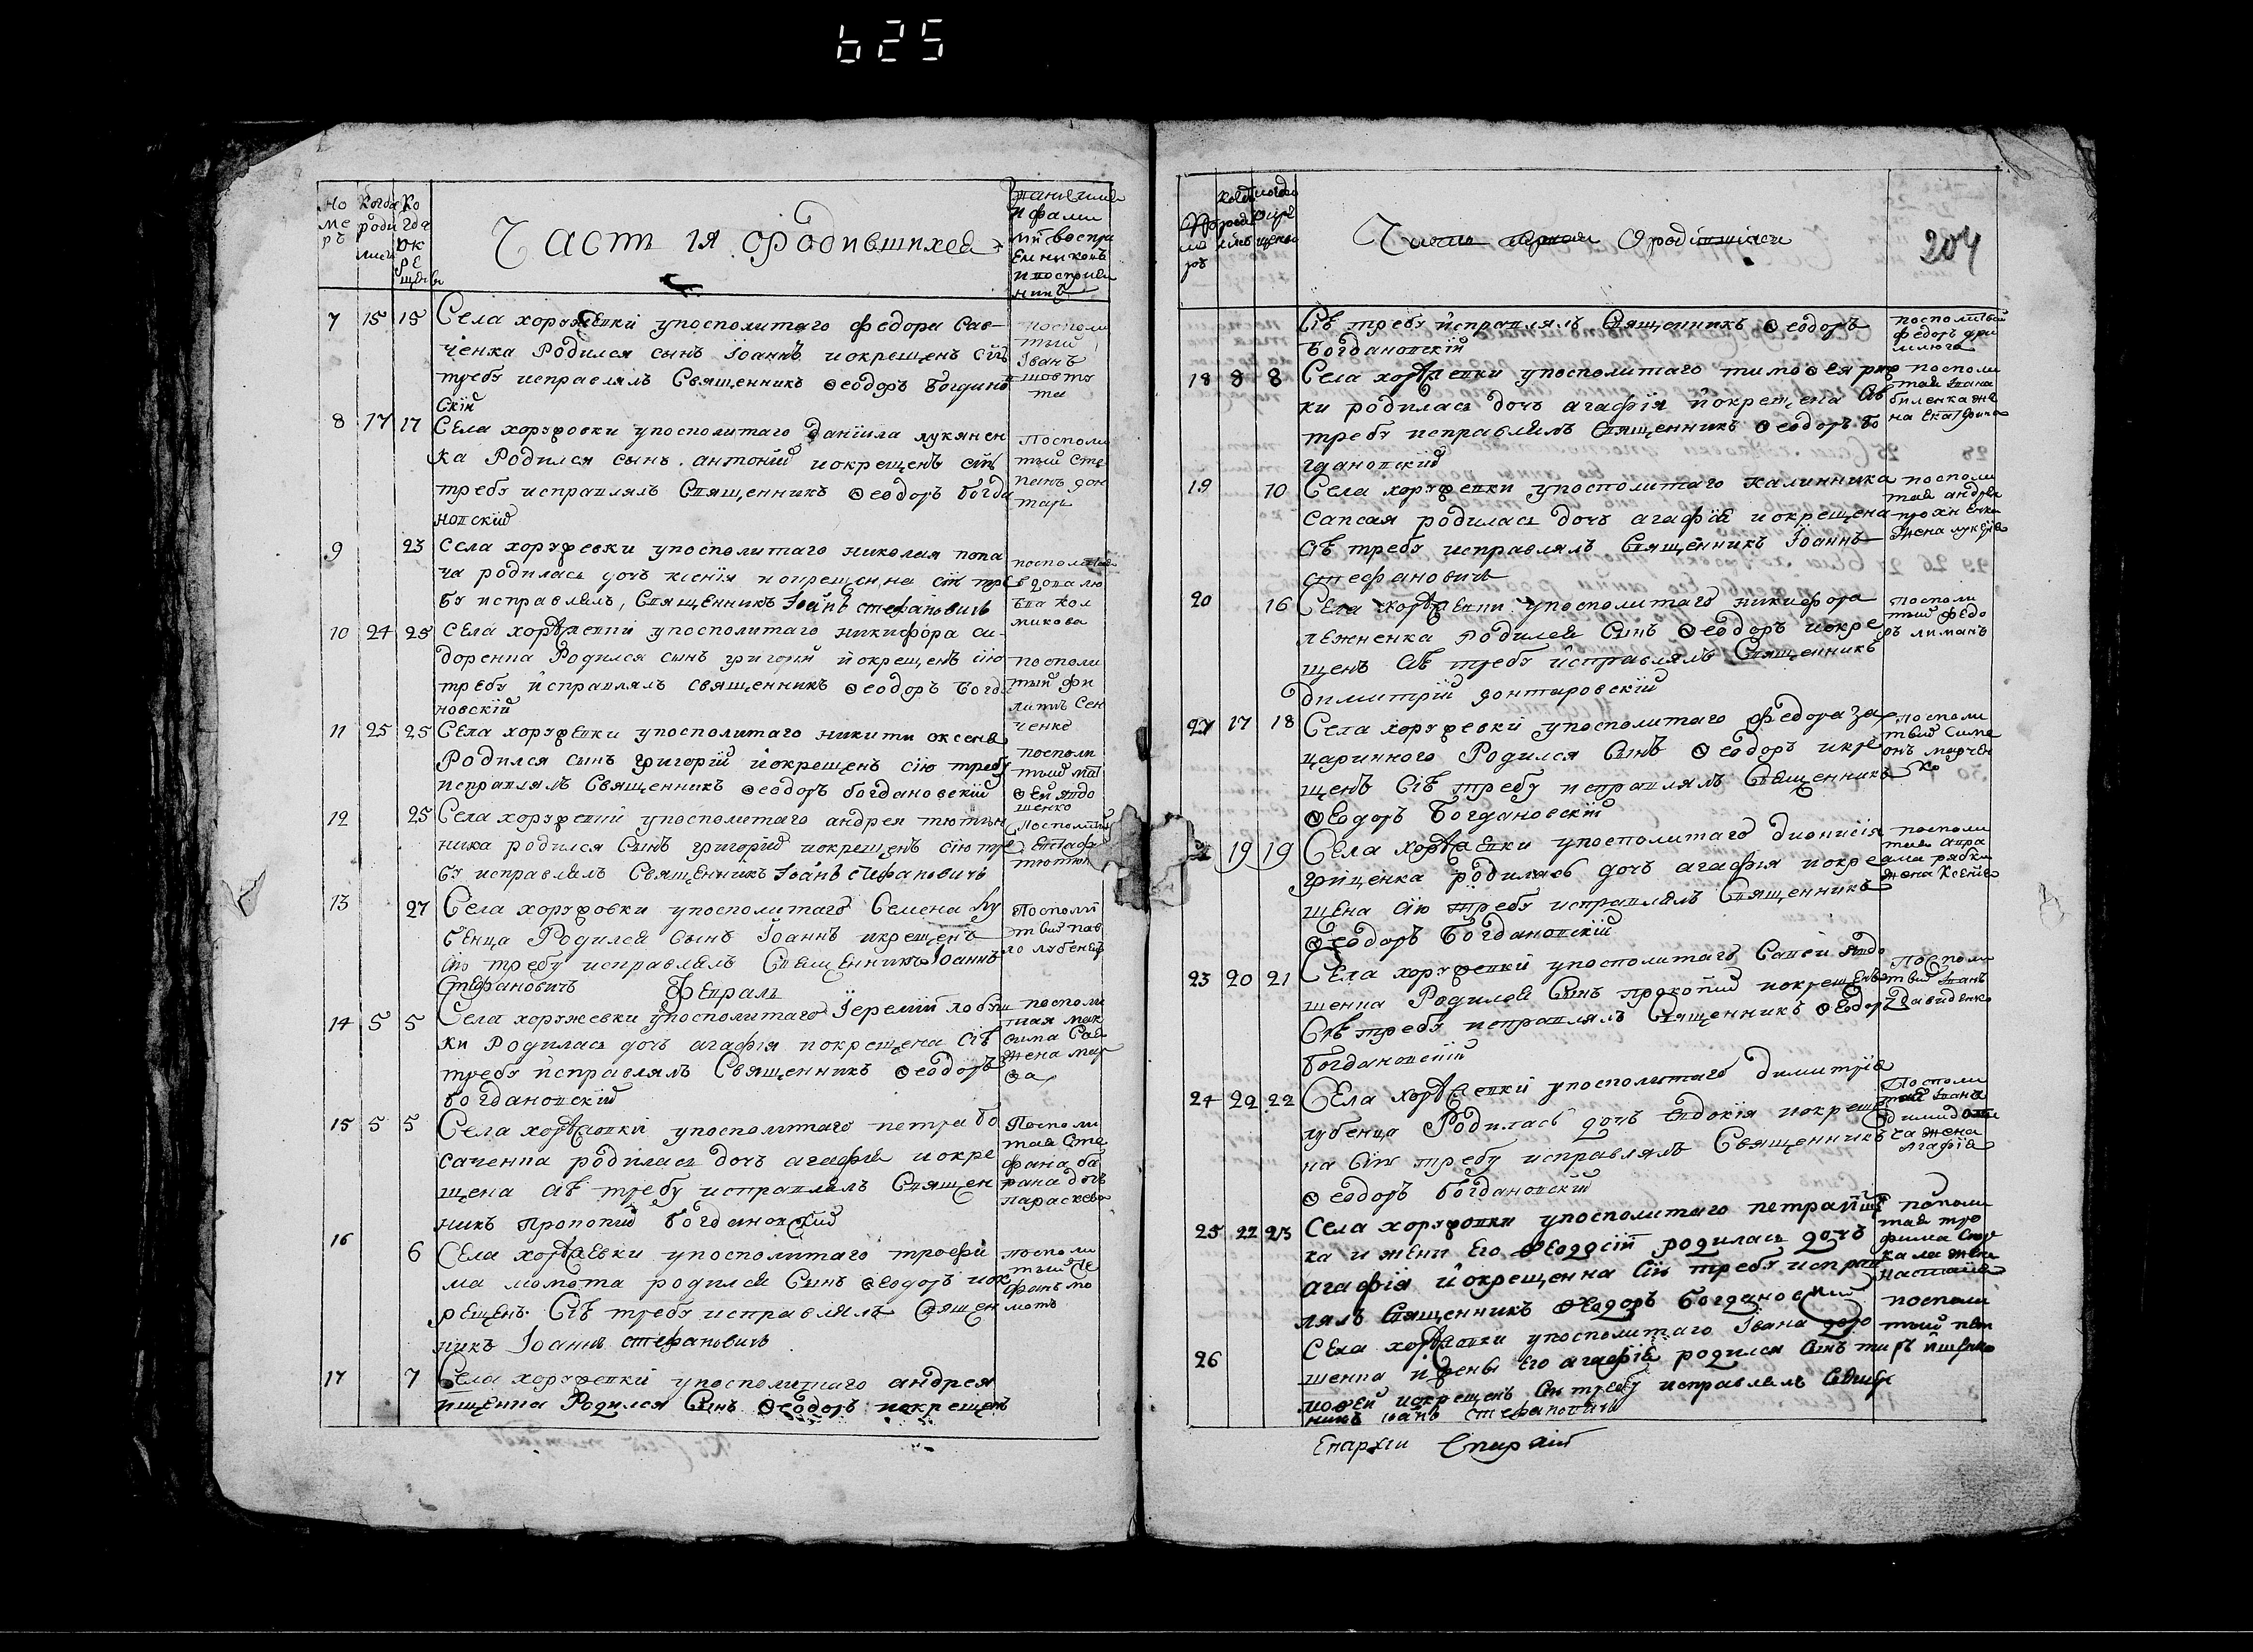 625
Но
ме
ръ
Когда
роди
лись
Ко
гда
ок
ре
щены
Част 1я ородившихся
и фами
лии воспри
емниковъ
7 15 15 Села хоружевки упосполитаго федора Сав-
ченка Родился сынъ Іоаннъ иокрещенъ сію
требу исправлялъ Священникъ Ѳеодоръ Богдано
скій
посполи
тый
Іванъ
8 17 17 Села хоружовки упосполитаго даніила лукянен
ка Родился сынъ антоній иокрещенъ сію
требу исправлялъ Священникъ Ѳеодоръ богда
новскій
Посполи
тый Сте
панъ гон
таръ
9 23 Села хоружевки упосполитаго николая попа
ча родилась дочь ксенія иокрещенна сію тре
бу исправлялъ, Священникъ Іоаннъ стефановичъ
10 24 25 Села хоружевки упосполитаго никифора си-
доренка Родился сынъ григорій иокрещенъ сію
требу исправлялъ священникъ Ѳеодоръ Богда
новскій
посполи
тый фи
липъ Сен
ченко
11 25 25 Села хоружевки упосполитаго никити оксене
Родился сынъ григорій иокрещенъ сію требу
исправлялъ Священникъ Ѳеодоръ богдановскій
посполи
тый мат
Ѳей явдо
шенко
12 25 Села хоружевки упосполитаго андрея тютюн
ника родился сынъ григорій иокрещенъ сію тре
бу исправлялъ Священникъ Іоаннъ стефановичъ
13 27 Села хоружовки упосполитаго Семена лу
бенца Родился сынъ Іоаннъ икрещенъ
сію требу исправлялъ Священникъ Іоаннъ
Стефановичъ
Посполи
тый пав
ло лубенец
Февраль
14 5 5 Села хоружевки упосполитаго Іереміи лобаш
ки Родилась дочь агафія иокрещена Сію
требу исправлялъ Священникъ Ѳеодоръ
богдановскій
посполи
тая мак
сима Сав
жена мар
Ѳа
15 5 5 Села хоружовки упосполитаго петра бо
саченка родилась дочь агафія иокре
щена сію требу исправлялъ Священ
никъ Прокопій богдановскій
Посполи
тая Сте
фана ба
рана дочь
параскева
16 6 Села хоружевки упосполитаго трофи
ма момота родился Сынъ Ѳеодоръ иок
рещенъ Сію требу исправлялъ Священ
никъ Іоаннъ стефановичъ
посполи
тый Сте
фанъ мо
мотъ
17 7 Села хоружевки упосполитаго андрея
ищенка Родился Сынъ Ѳеодоръ иокрещенъ
Часть первая Ородившихся
204
Сію требу исправлялъ Священникъ Ѳеодоръ
Богдановскій
посполитый
федоръ
18 8 8 Села хоружевки упосполитаго тимоѲея
ки родилась дочь агафія иокрещена сію
требу исправлялъ Священникъ Ѳеодоръ Бо
гдановскій
посполи
тая Івана
биленка же
на Екатерина
19 10 Села хоружевки упосполитаго Калинника
сапсая родилась дочь агафія иокрещена
сію требу исправлялъ Священникъ Іоаннъ
стефановичъ
посполи
тая андрея
жена
20 16 Села хоружевки упосполитаго никифора
лежненка родился сынъ Ѳеодоръ иокре
щенъ сію требу исправлялъ Священникъ
димитрій гонтаровскій
посполи
тый федо
ръ лиманъ
17 18 Села хоружевки упосполитаго федора за
царинного Родился Сынъ Ѳеодоръ икре
щенъ Сію требу исправлялъ Священникъ
Ѳеодоръ Богдановскій
посполи
тый Симе
онъ марчен
ко
19 19 Села хоружевки упосполитаго дионисія
грищенка родилась дочь агафія иокре
щена сію требу исправлялъ Священникъ
Ѳеодоръ Богдановскій
посполи
тая авра
ама рябки
жена Ксения
23 20 21 Села хоружевки упосполитаго Савеи явдо
шенка Родился Сынъ прокопій иокрещенъ
Сію требу исправлялъ Священникъ Ѳеодоръ
богдановскій
Посполи
тый Іванъ
давиденко
24 22 22 Села хоружевки упосполитаго димитрія
лубенца Родилась дочь Евдокія иокреще
на Сію требу исправлялъ Священникъ
Ѳеодоръ богдановскій
Посполи
жена
Агафія
25 22 23 Села хоружовки упосполитаго петра
ка и жени его Ѳеодосіи родилась дочь
агафія иокрещенна Сію требу исправ
лялъ Священникъ Ѳеодоръ богдановскій
26 Села хоружовки упосполитаго Івана доро
шенка и жены его агафіи родился Сынъ ти
моѲей иокрещенъ Сію требу исправлялъ Свяще
никъ іоанъ Стефановичъ
Епархии Епархии